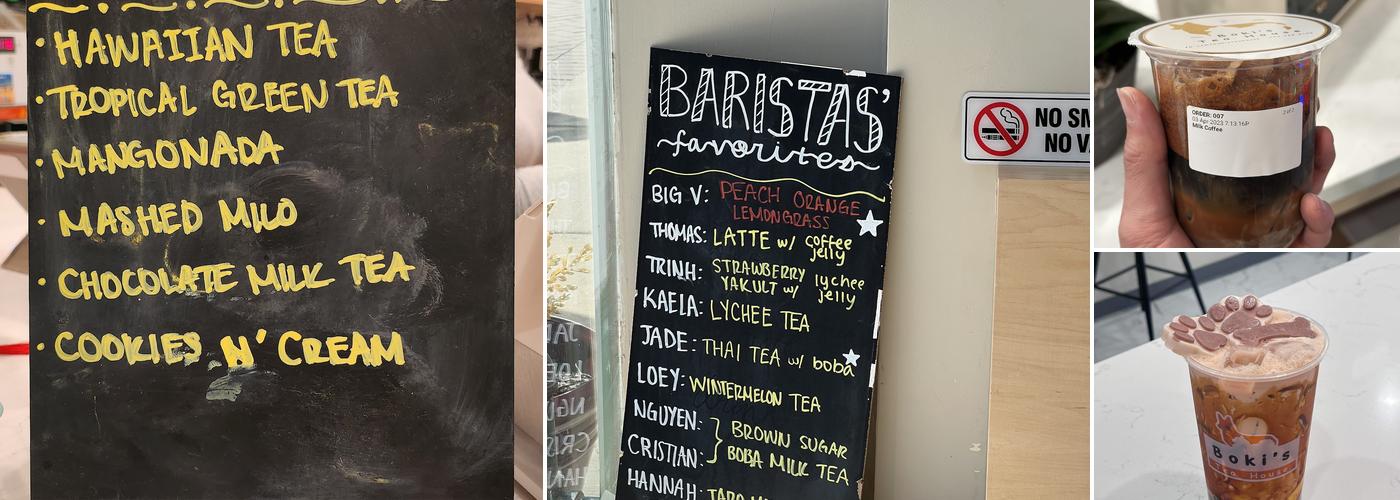 • HAWAIIAN TEA
• TROPICAL GREEN TEA
• MANGONADA
• MASHED MILO
• CHOCOLATE MILK TEA
• COOKIES N' CREAM
BARISTAS'
favorites
BIG V: PEACH ORANGE
LEMONGRASS
THOMAS: LATTE w/ coffee
jelly
TRINH: STRAWBERRY lychee
YAKULT w/ jelly
KAELA: LYCHEE TEA
JADE: THAI TEA w/ boba
LOEY: WINTERMELON TEA
NGUYEN:
CRISTIAN:
BROWN SUGAR
BOBA MILK TEA
HANNAH: TARO
NO SM
NO VA
Boki's
Tea House
ORDER: 007
03 Apr 2023 7:13:16P
Milk Coffee
Boki's
Tea House